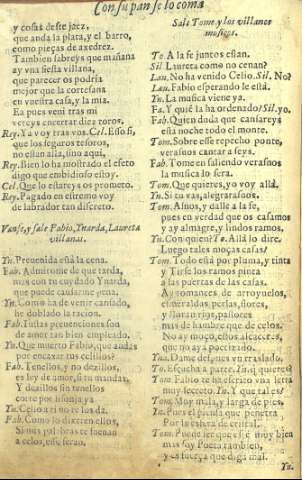 Con su pan se lo coma
y cosas deste jaez,
que anda la plata, y el barro,
como pieças de axedrez.
Tambien sabreys que mañana
ay vna fiesta villana,
que parecer os podria
mejor que la cortesana
en vuestra casa, y la mia.
Ea pues veni tras mi
vereys encerrar diez toros.
Rey. Ya voy tras vos. Cel. Esso si,
que los seguros tesoros,
no estan alla, sino aqui,
Rey. Bien lo ha mostrado el efeto
digo que embidioso estoy.
Cel. Que lo estareys os prometo.
Rey. Pagado en estremo voy
de labrador tan discreto.
Vanse, y sale Fabio, Ynarda, Laureta
villanas.
Yn. Preuenida està la cena.
Fab. Admirome de que tarda,
mas con tu cuydado Ynarda,
que puede causarme pena.
Yn. Como ha de venir cansado,
he doblado la racion.
Fab. Iustas preuenciones son
de amor tan bien empleado.
Yn. Que muerto Fabio, que andas
por encaxar tus celillos?
Fab. Tenellos, y no dezillos,
es ley de amor, si tu mandas,
Y dezillos sin tenellos
corre por lisonja ya
Yn. Celio
Fab. Como lo dizen ellos,
Sin mas palabras te suenan
a celos, esse seran.
Sale Tome, y los villanos
musicos.
To. A la fe juntos estan.
Sil. Laureta como no cenan?
Lau. No ha venido Celio. Sil. No?
Lau. Fabio esperando le està.
Yn. La musica viene ya.
Fa. Y què la ha ordenado? Sil. yo.
Fab. Quien duda que cansareys
esta noche todo el monte.
Tom. Sobre esse repecho ponte,
verasnos cantar a seys.
Fab. Tome en saliendo verasnos
la musica lo sera.
Tom. Que quieres, yo voy allà.
Yn. Si tu vas, alegrarasnos.
Tom. Amos, y dalle a la fe,
pues en verdad que os casamos
y ay almagre, y lindos ramos.
Yn. Con quien? To. Allà lo dire.
Luego tales moças casas?
Tom. Todo està por pluma, y tinta
y Tirse los ramos pinta
a las puertas de las casas.
Ay romances de arroyuelos,
esmeraldas, perlas, flores,
y lloran rios, pastores
mas de hambre que de celos,
No ay moço, ellos alcaceres,
que no aya poetizado.
Yna. Dame desones vn traslado,
To. Escucha a parte. Yn. si quieres
Tom. Fabio te ha escrito vna letra
muy secreto. Yn. Y que tales?
Tom. Muy mala, y larga de pies
Yn. Pues el picaña que penetra
Por la esfera de cristal.
Tom. Puede ser que este muy bien
mas soy Poeta tambien,
y es fuerça que diga mal.
Yn.